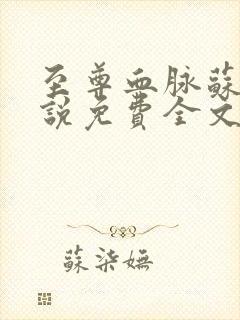 至尊血脉蘇
說免費全文
蘇柒嫵